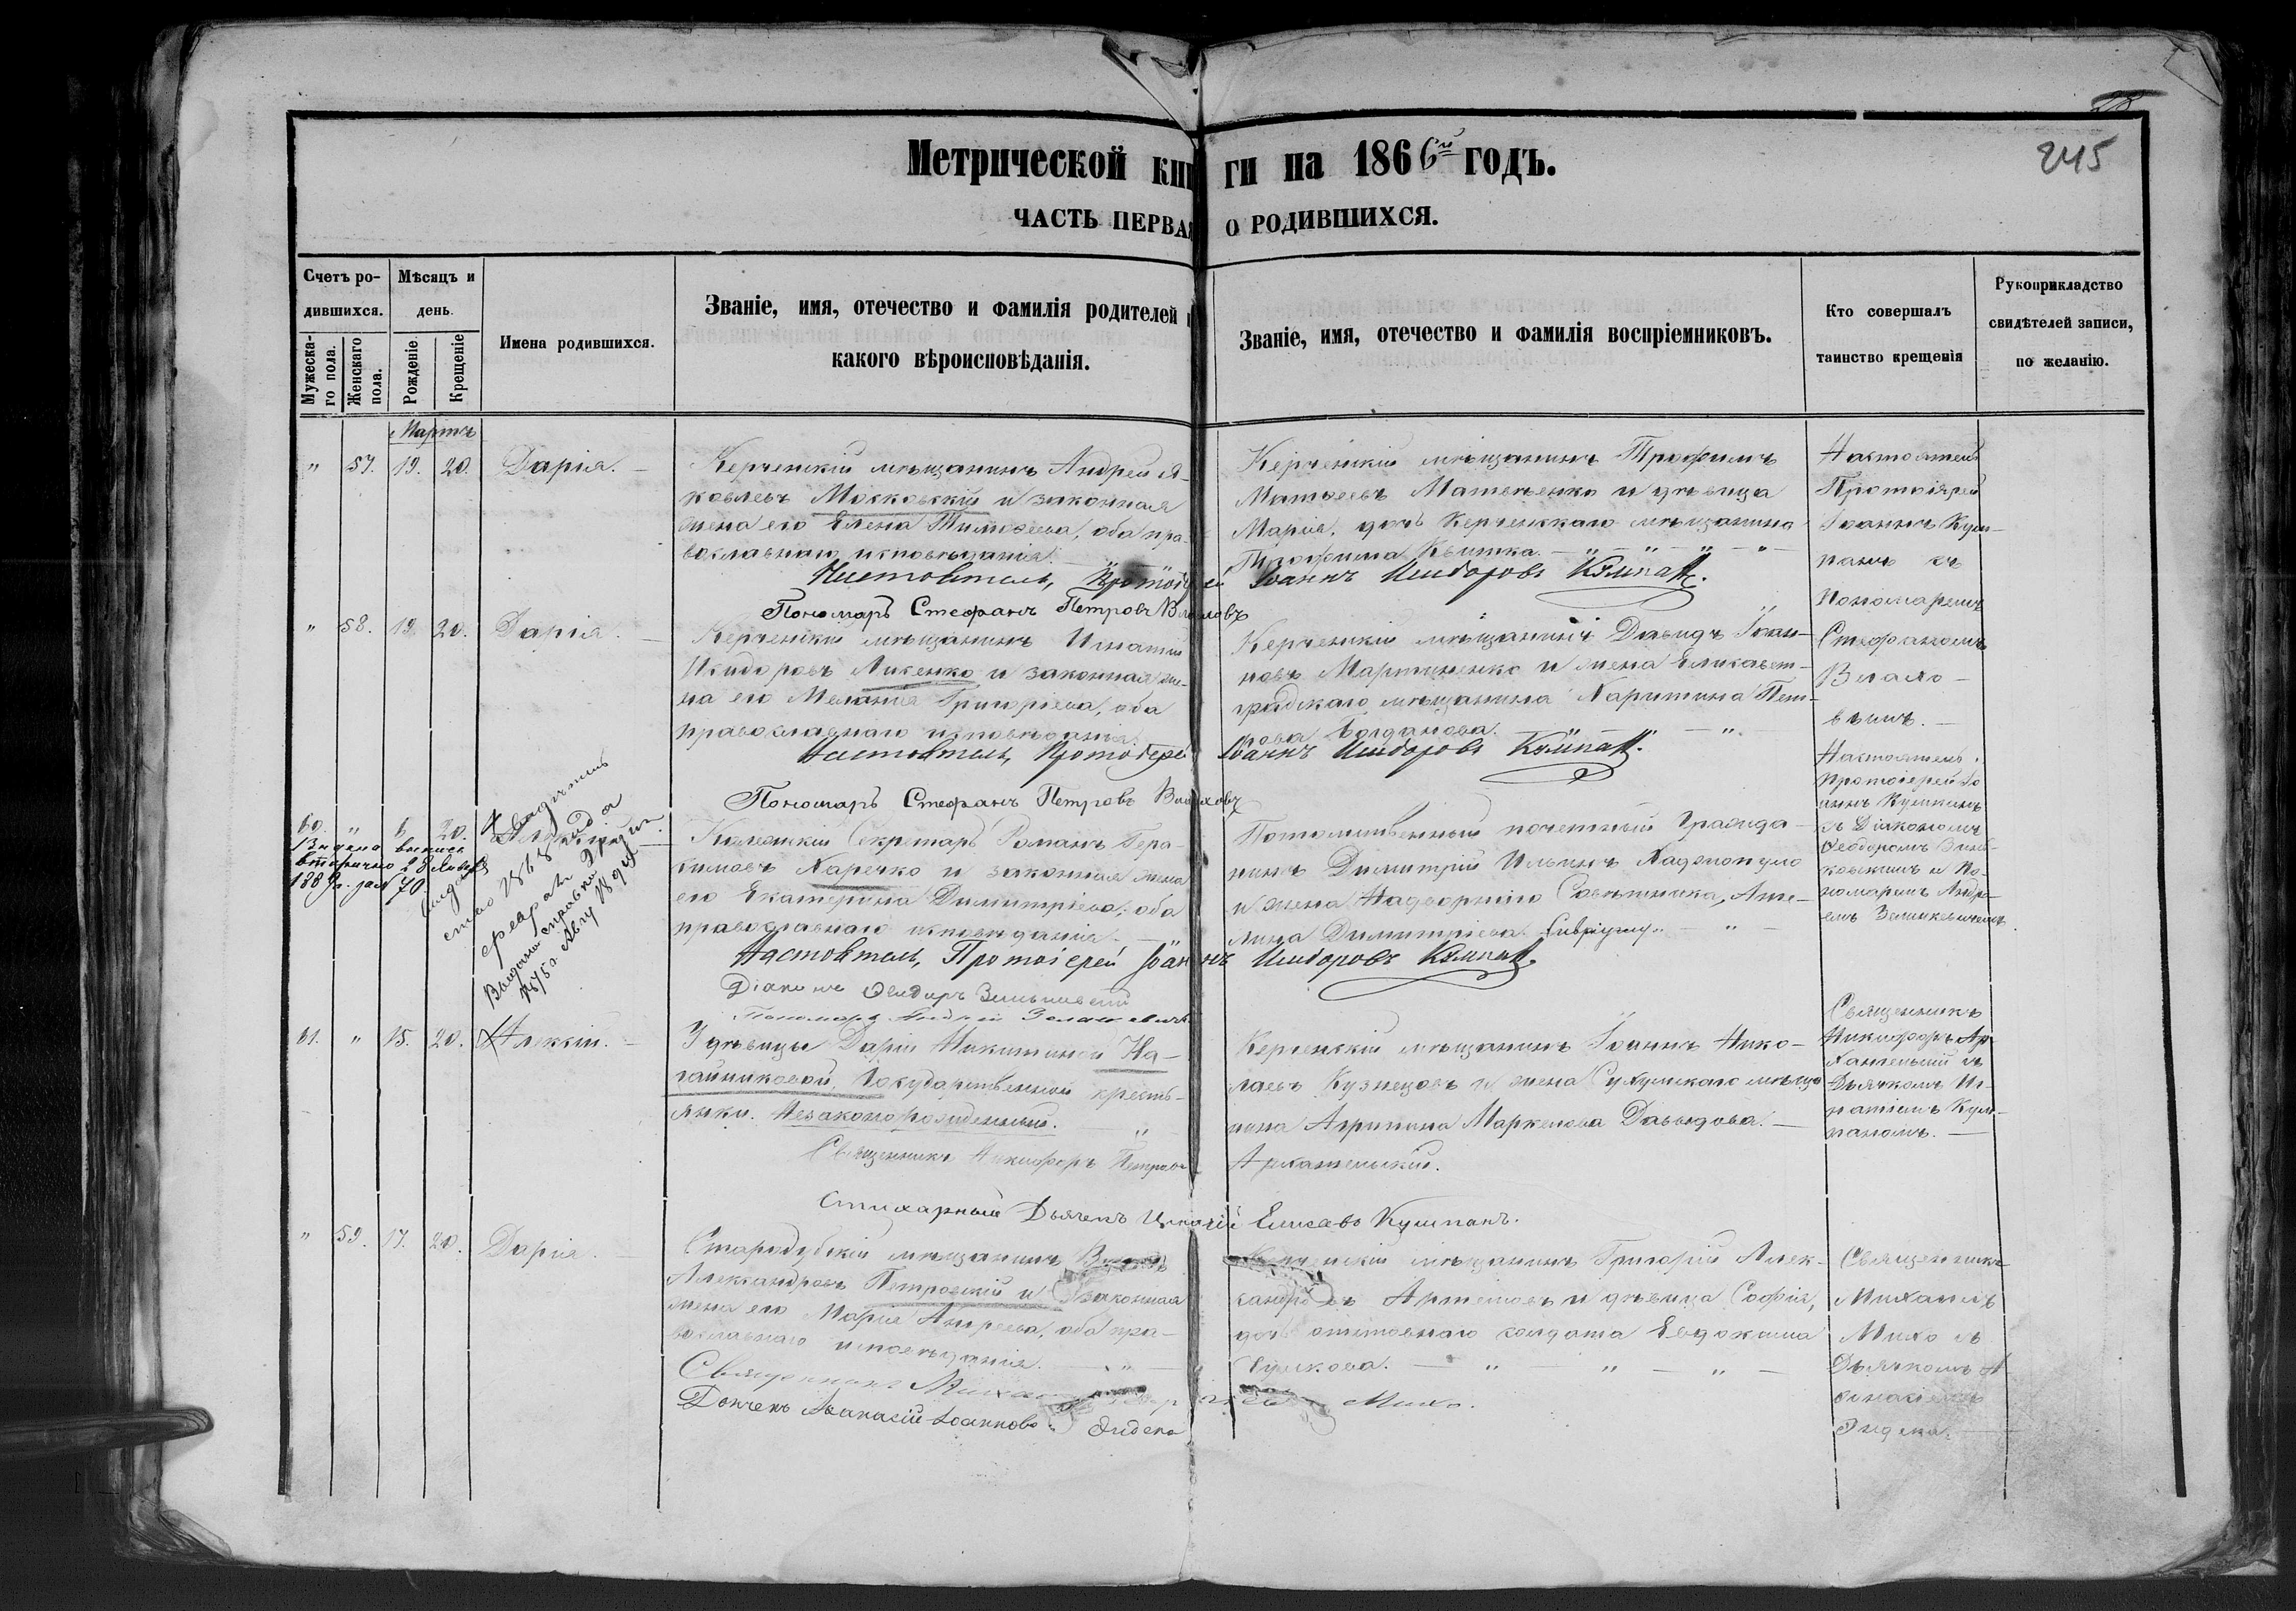 245
Метрической книги на 1866й годъ.
ЧАСТЬ ПЕРВАЯ О РОДИВШИХСЯ.
Счетъ ро-
дившихся.
Мужеска-
го пола.
Женскаго
пола.
Мѣсяцъ и
день.
Рожденіе.
Крещеніе
Имена родившихся.
Званіе, имя, отечество и фамилія родителей и
какого вѣроисповѣданія.
Званіе, имя, отечество и фамилія воспріемниковъ.
Кто совершалъ
таинство крещенія
Рукоприкладство
свидѣтелей записи,
по желанію.
Мартъ
" 57. 19. 20. Дарія.
Керченскій мѣщанинъ Андрей Я-
ковлевъ Московскій и законная
жена его Елена Тимоѳеева, оба пра-
вославнаго исповѣданія.
Керченскій мѣщанинъ Трофимъ
Матвеевъ Матвѣенко и дѣвица
Марія, дочь Керченскаго мѣщанина
Трофима Квитка. — " — " — " — " —
Настоятель
Протоіерей
Іоаннъ Кум-
панъ съ
Пономаремъ
Стефаномъ
Настоятель, Протоіерей Іоаннъ Исидоровъ Кумпан.
Пономарь Стефанъ Петровъ
" 58. 19. 20. Дарія.
Керченскій мѣщанинъ Игнатій
Исидоровъ Ликенко и законная же-
на его Меланія Григоріева, оба
православнаго исповѣданія.
Керченскій мѣщанинъ Давидъ Іоан-
новъ Мартиненко и жена Елисавет-
градскаго мѣщанина Харитина Пет-
рова Богданова. — " —
Настоятель, Протоіерей Іоаннъ Исидоровъ Кумпан.
Пономарь Стефанъ Петровъ
60. " 6 20.
Выдана выпись
вторично 28 Января
188 г. за № 70.
Выдана справка
1875 г. Авгу
Колежскій Секретарь Романъ Гера-
симовъ Харечко и законная жена
его Екатерина Димитріева, оба
православнаго исповѣданія. —
Потомственный почетный гражда-
нинъ Димитрій Ильинъ Хаджопуло
и жена Надворнаго Совѣтника, Анге-
лина Димитріева
Настоятель,
Протоіерей Іо-
аннъ Кумпанъ
съ Діакономъ
Ѳеодоромъ Зинь-
ковскимъ и По-
номаремъ Андре-
емъ
Настоятель, Протоіерей Іоаннъ Исидоровъ Кумпан.
Діаконъ Ѳеодоръ Зиньковскій
Пономарь Андрей
61. " 15. 20. Алексій. —
У дѣвицы Даріи Никитиной На-
гайниковой, Государственной кресть-
янки. Незаконорожденный. "
Керченскій мѣщанинъ Іоаннъ Нико-
лаевъ Кузнецовъ и жена Сухумскаго мѣща-
нина Агрипина Маркелова Давыдова. —
Священникъ
Никифоръ Ар-
хангельскій съ
Дьячкомъ Иг-
натіемъ Кум-
паномъ. —
Священникъ Никифоръ Петровъ Архангельскій.
Стихарный Дьячекъ Игнатій Елисаевъ Кумпанъ.
" 59. 17. 20. Дарія. —
Стародубскій мѣщанинъ
Александровъ Петровскій и законная
жена его Марія Андреева, оба пра-
вославнаго исповѣданія. — " —
Керченскій мѣщанинъ Григорій Алек-
сандровъ Артемовъ и дѣвица Софія,
дочь отставнаго солдата Евдокима
— " — " — " —
Священникъ
Михаилъ
Михо съ
Дьячкомъ А-
ѳанасіемъ
Священникъ Михаилъ Михо.
Дьячекъ Аѳанасій Іоанновъ